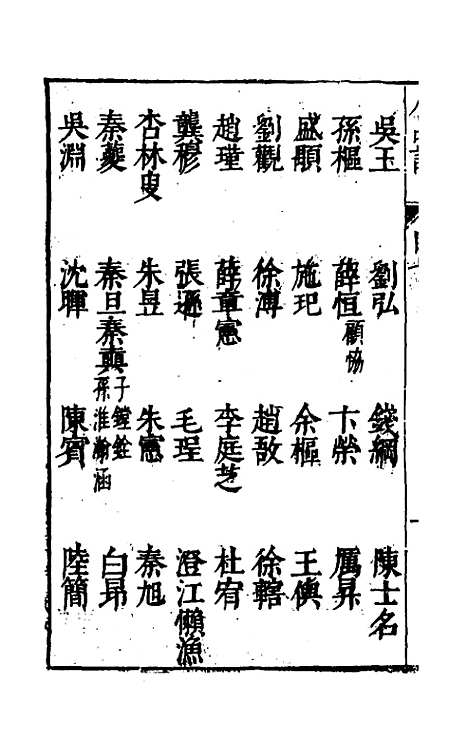 吳玉 劉弘 錢綱 陳士名
孫樞 薛恒 顧協 卞榮 厲昇
盛顒 施玘 余樞 王僎
劉觀 徐溥 趙敔 徐轄
趙瑾 薛章憲 李庭芝 杜宥
龔穆 張遜 毛珵 澄江懶漁
杏林叟 朱昱 朱憲 秦旭
秦夔 秦旦 秦真 子鏜銓 孫淮瀚涵 白昂
吳淵 沈暉 陳賓 陸簡